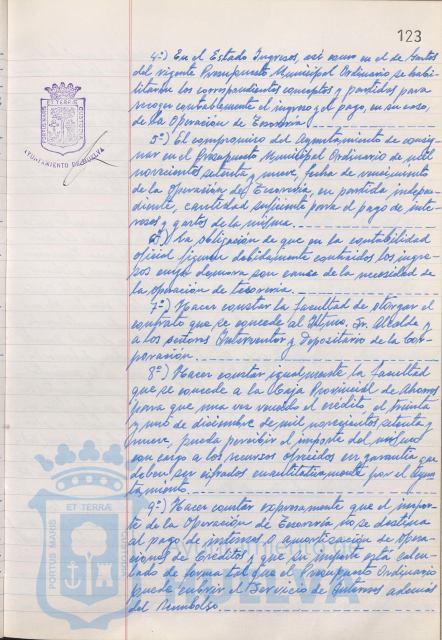 123
4º) En el Estado Ingresos, así como en el de Gastos
del vigente Presupuesto Municipal Ordinario, se habi-
litarán los correspondientes conceptos y partidas para
recoger contablemente el ingreso y el pago, en su caso,
de la Operación de Tesorería.
5º) El compromiso del Ayuntamiento de consig-
nar en el Presupuesto Municipal Ordinario de mil
novecientos setenta y nueve, fecha de vencimiento
de la Operación de Tesorería, en partida indepen-
diente, cantidad suficiente para el pago de inte-
reses y gastos de la misma.
6º) La obligación de que en la contabilidad
oficial figuren debidamente contraídos los ingre-
sos cuya demora son causa de la necesidad de
la operación de tesorería.
7º) Hacer constar la facultad de otorgar el
contrato que se concede al Iltmo. Sr. Alcalde y
a los señores Interventor y Depositario de la Cor-
poración.
8º) Hacer constar igualmente la facultad
que se concede a la Caja Provincial de Ahorros
para que una vez vencido el crédito, el treinta
y uno de diciembre de mil novecientos setenta y
nueve, pueda percibir el importe del mismo
con cargo a los recursos ofrecidos en garantía que
deben ser cifrados cuantitativamente por el Ayun-
tamiento.
9º) Hacer constar expresamente que el impor-
te de la Operación de Tesorería no se destina
al pago de intereses o amortización de Opera-
ciones de Créditos y que su importe está calcu-
lado de forma tal que el Presupuesto Ordinario
pueda cubrir el Servicio de Intereses además
del Reembolso.
AYUNTAMIENTO DE HUELVA
PORTUS MARIS
ET TERRÆ
CUSTODIA